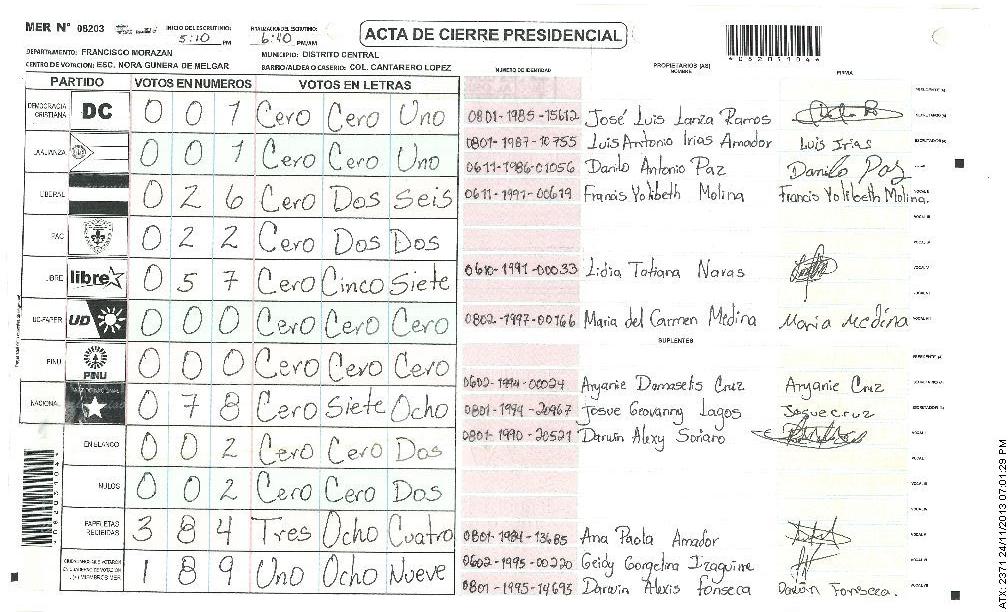 MER N° 08203 INICIO DEL ESCRUTINIO: 5:10 PM FINALIZACION DEL ESCRUTINIO: 6:40 PM/AM ACTA DE CIERRE PRESIDENCIAL
DEPARTAMENTO: FRANCISCO MORAZAN MUNICIPIO: DISTRITO CENTRAL
CENTRO DE VOTACION: ESC. NORA GUNERA DE MELGAR BARRIO/ALDEA O CASERIO: COL. CANTARERO LOPEZ
PARTIDO VOTOS EN NUMEROS VOTOS EN LETRAS NUMERO DE IDENTIDAD PROPIETARIOS (AS) NOMBRE FIRMA
DEMOCRACIA CRISTIANA DC 0 0 1 Cero Cero Uno 0801-1985-15612 José Luis Lanza Ramos
0801-1987-10755 Luis Antonio Irias Amador Luis Irias
LA ALIANZA 0 0 1 Cero Cero Uno 0611-1986-01056 Danilo Antonio Paz Danilo Paz
LIBERAL 0 2 6 Cero Dos Seis 0611-1991-00619 Francis Yolibeth Molina Francis Yolibeth Molina.
PAC 0 2 2 Cero Dos Dos
LIBRE libre 0 5 7 Cero Cinco Siete 0610-1991-00033 Lidia Tatiana Navas
UD-FAPER UD 0 0 0 Cero Cero Cero 0802-1997-00166 Maria del Carmen Medina Maria Medina
SUPLENTES
PINU PINU 0 0 0 Cero Cero Cero
0602-1994-00024 Aryanie Damaselis Cruz Aryanie Cruz
NACIONAL 0 7 8 Cero Siete Ocho 0801-1994-20967 Josue Geovanny Lagos Josue cruz
EN BLANCO 0 0 2 Cero Cero Dos 0801-1990-20521 Darwin Alexy Soriano
NULOS 0 0 2 Cero Cero Dos
PAPELETAS RECIBIDAS 3 8 4 Tres Ocho Cuatro 0801-1984-13685 Ana Paola Amador
1 8 9 Uno Ocho Nueve 0602-1995-00220 Geidy Gorgelina Izaguirre
0801-1995-14693 Darwin Alexis Fonseca Darwin Fonseca.
ATX 2371 24/11/2013 07:01:29 PM